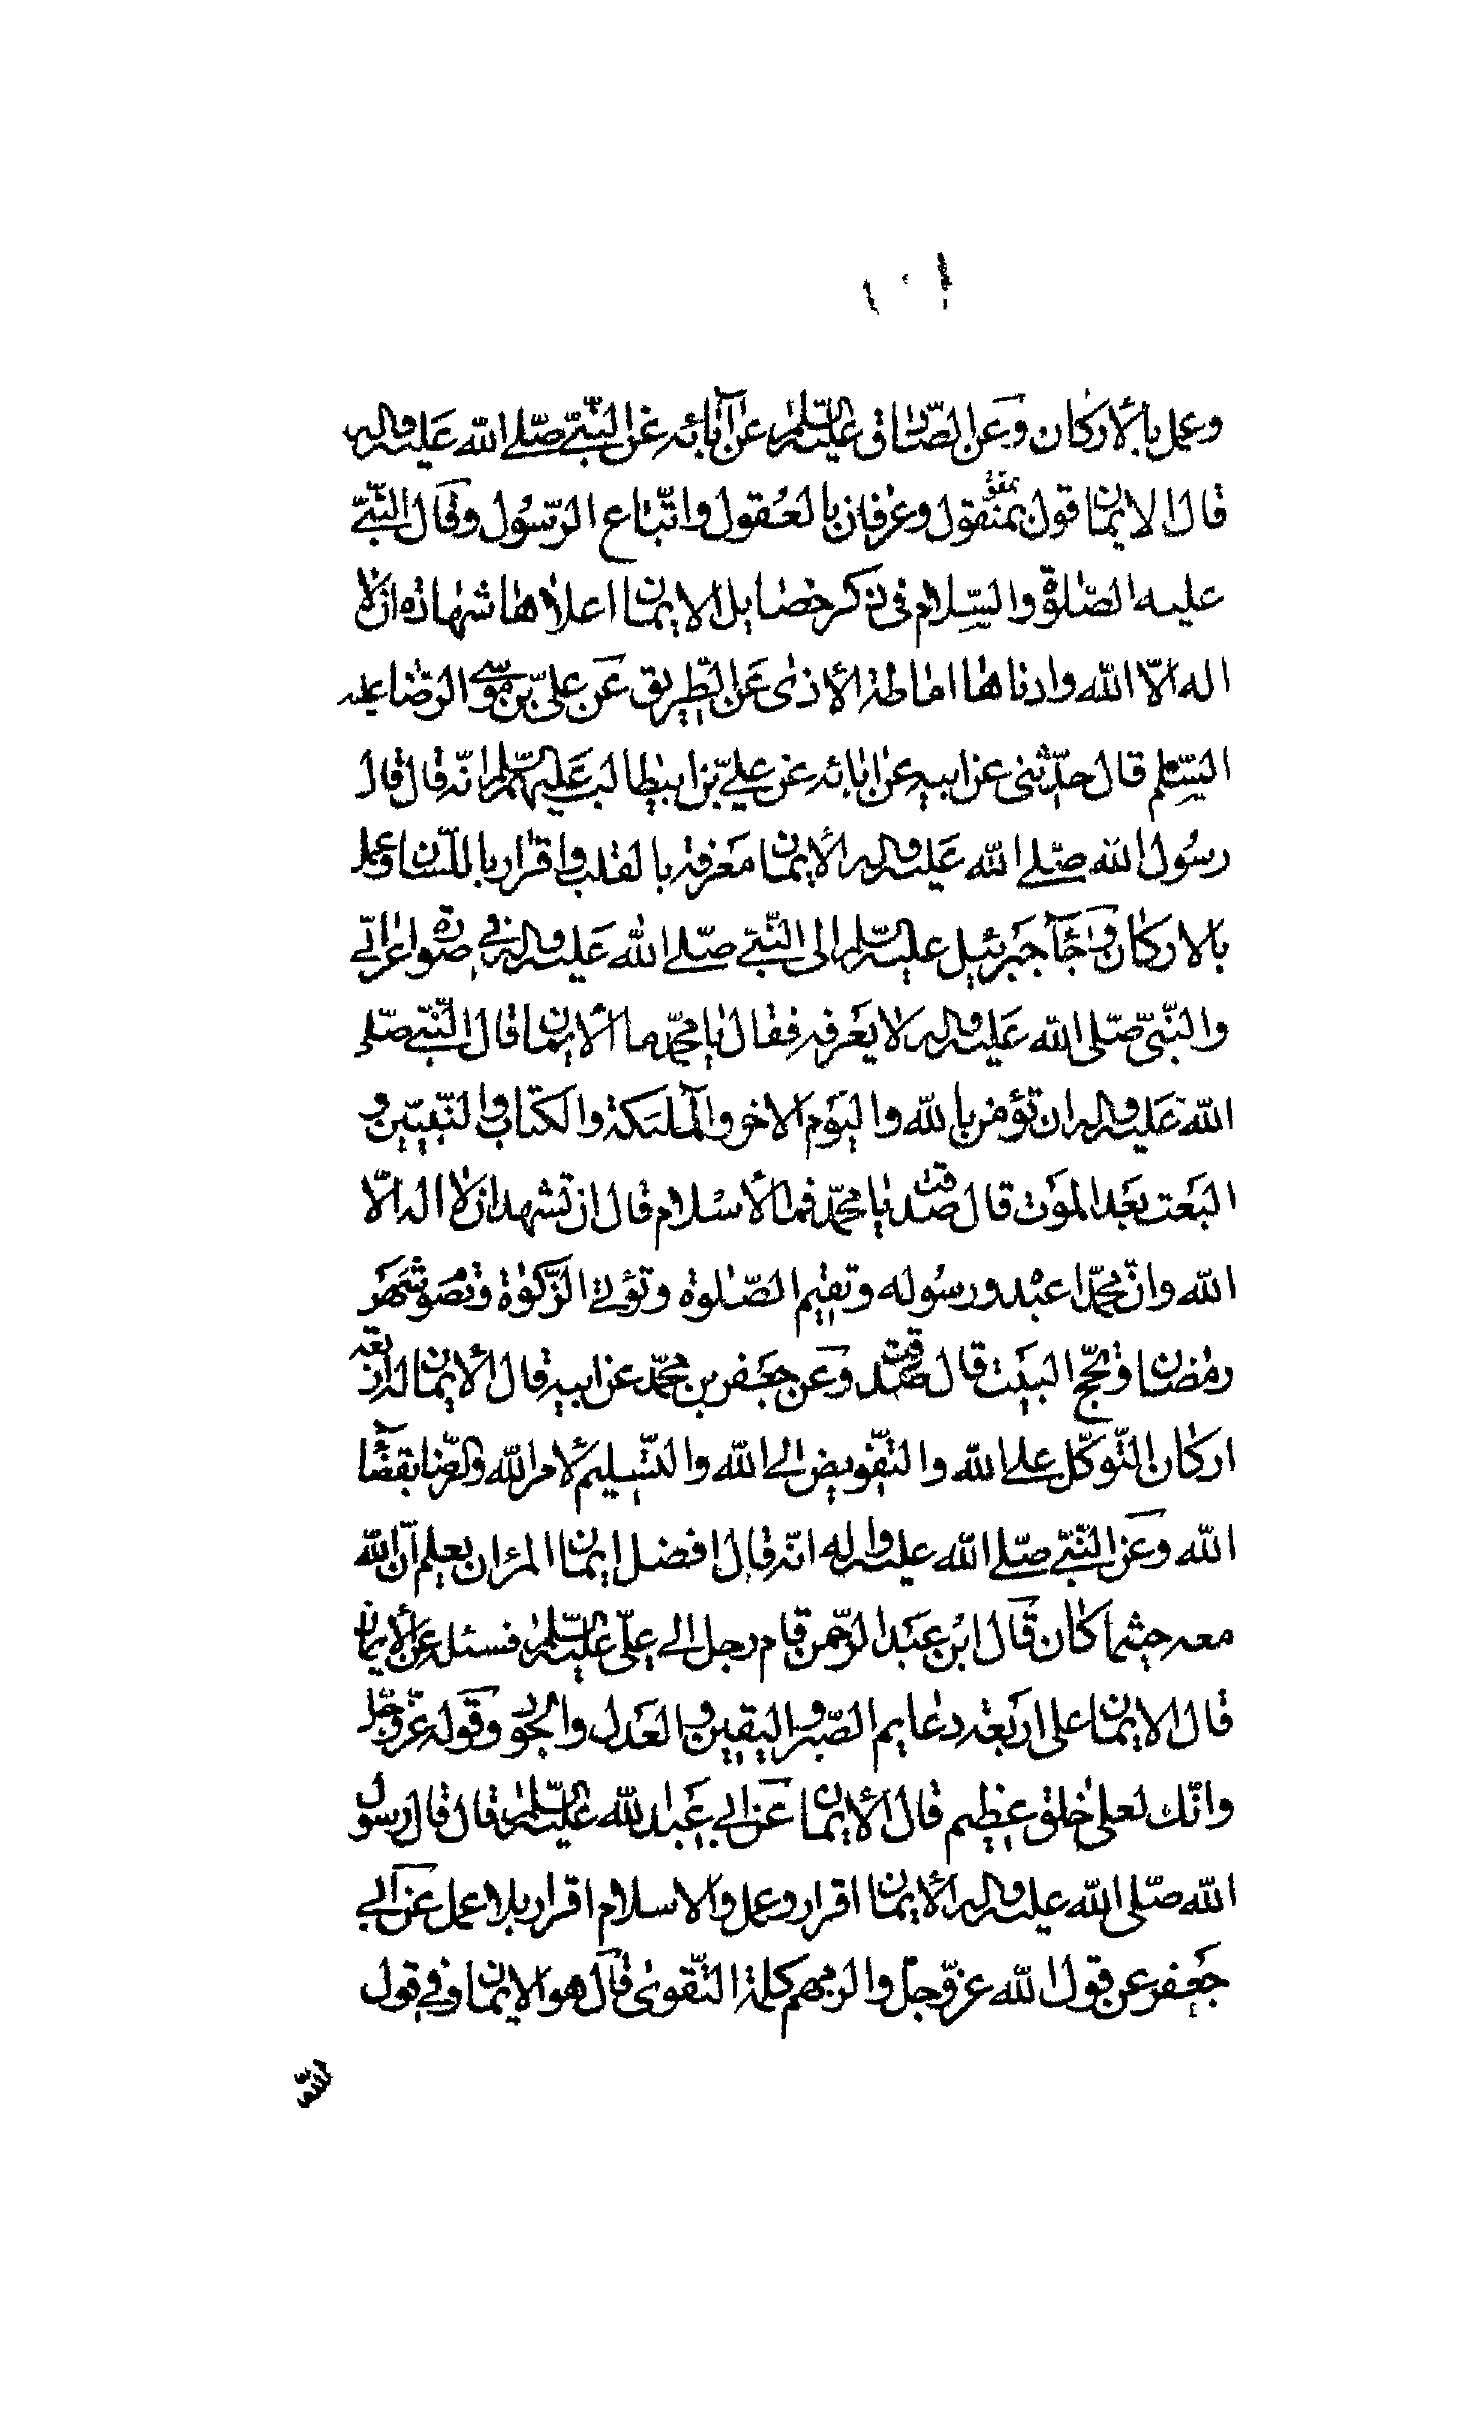 وعمل بالأركان وعن الصّادق عليه السّلام عن آبائه عن النّبيّ صلّى الله عليه واله
قال الايمان قول بمنقول بمقو وعرفان بالعقول واتّباع الرّسول وقال النّبيّ
عليه الصّلوة والسّلام في ذكر خصايل الايمان اعلاها شهادة ان لا
اله الّا الله وادناها اماطة الأذى عن الطّريق عن عليّ بن موسى الرّضا عليه
السّلم قال حدّثنى عن ابيه عن ابائه عن عليّ بن ابيطالب عليهم السّلم انّه قال قال
رسول الله صلّى الله عليه واله الأيمان معرفة بالقلب واقرار باللّسان وعمل
بالاركان وجآء جبرئيل عليه السّلم الى النّبيّ صلّى الله عليه واله في صورة اعرابيّ
والنّبىّ صلّى الله عليه واله لا يعرفه فقال يا محمّد ما الأيمان قال النّبيّ صلّى
الله عليه واله ان تؤمن بالله واليوم الاخر والملئكة والكتاب والنّبيّين و
البعث بعد الموت قال صدقت يا محمّد فما الأسلام قال ان تشهد ان لا اله الّا
الله وانّ محمّدا عبده ورسوله وتقيم الصّلوة وتؤتى الزّكوة وتصوم شهر
رمضان وتحجّ البيت قال صدقت وعن جعفر بن محمّد عن ابيه قال الأيمان له اربعة
اركان التّوكّل على الله والتّفويض الى الله والتّسليم لأمر الله والرّضا بقضآء
الله وعن النّبيّ صلّى الله عليه واله انّه قال افضل ايمان المرء ان يعلم انّ الله
معه حيثما كان قال ابن عبد الرّحمن قام رجل الى عليّ عليه السّلم فسئله عن الأيمان
قال الايمان على اربعة دعايم الصّبر واليقين والعدل والجود وقوله عزّ وجلّ
وانّك لعلى خلق عظيم قال الأيمان عن ابي عبد الله عليه السّلم قال قال رسول
الله صلّى الله عليه واله الأيمان اقرار وعمل والاسلام اقرار بلا عمل عن ابي
جعفر عن قول الله عزّ وجلّ والزمهم كلمة التّقوى قال هو الايمان وفي قول
الله